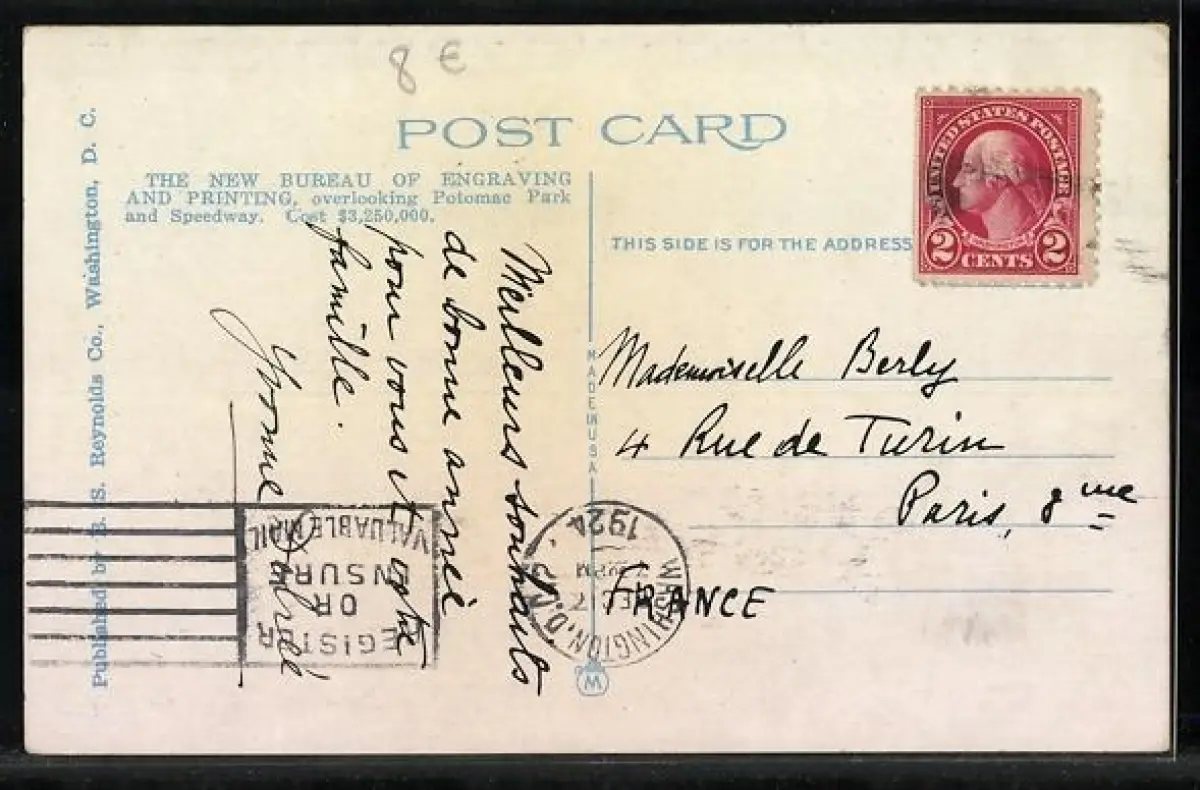 8 €
POST CARD
Published by B. S. Reynolds Co., Washington, D. C.
THE NEW BUREAU OF ENGRAVING
AND PRINTING, overlooking Potomac Park
and Speedway. Cost $3,250,000.
THIS SIDE IS FOR THE ADDRESS
UNITED STATES POSTAGE
2 CENTS 2
Meilleurs souhaits
de bonne année
pour vous et votre
famille.
Yvonne
MADE IN USA
Mademoiselle Berly
4 Rue de Turin
Paris, 8me
FRANCE
WASHINGTON, D.C.
DEC 17
PM
1924
REGISTER
OR
INSURE
VALUABLE MAIL
W